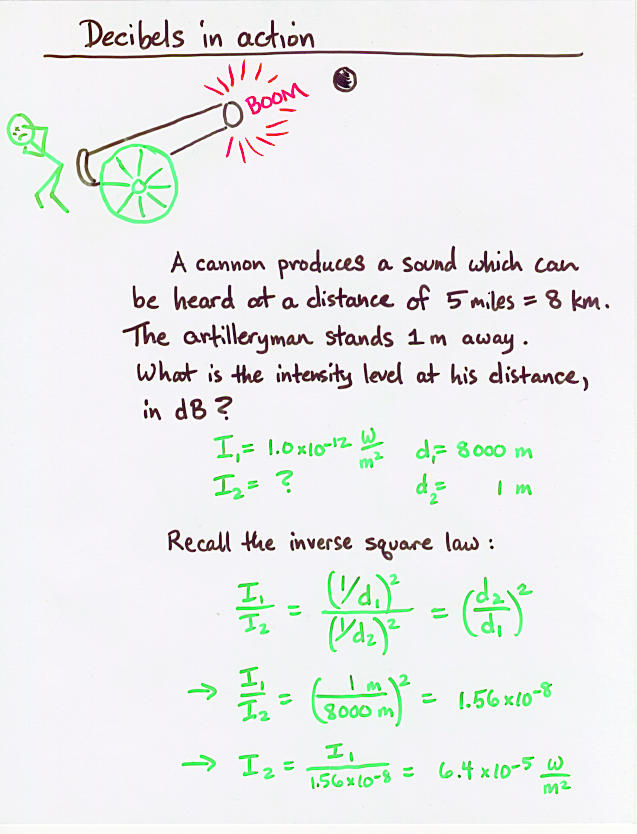 Decibels in action
BOOM
A cannon produces a sound which can
be heard at a distance of 5 miles = 8 km.
The artilleryman stands 1 m away.
What is the intensity level at his distance,
in dB?
I₁ = 1.0×10⁻¹² W/m² d₁ = 8000 m
I₂ = ? d₂ = 1 m
Recall the inverse square law:
I₁/I₂ = (1/d₁)²/(1/d₂)² = (d₂/d₁)²
→ I₁/I₂ = (1 m/8000 m)² = 1.56×10⁻⁸
→ I₂ = I₁/1.56×10⁻⁸ = 6.4×10⁻⁵ W/m²